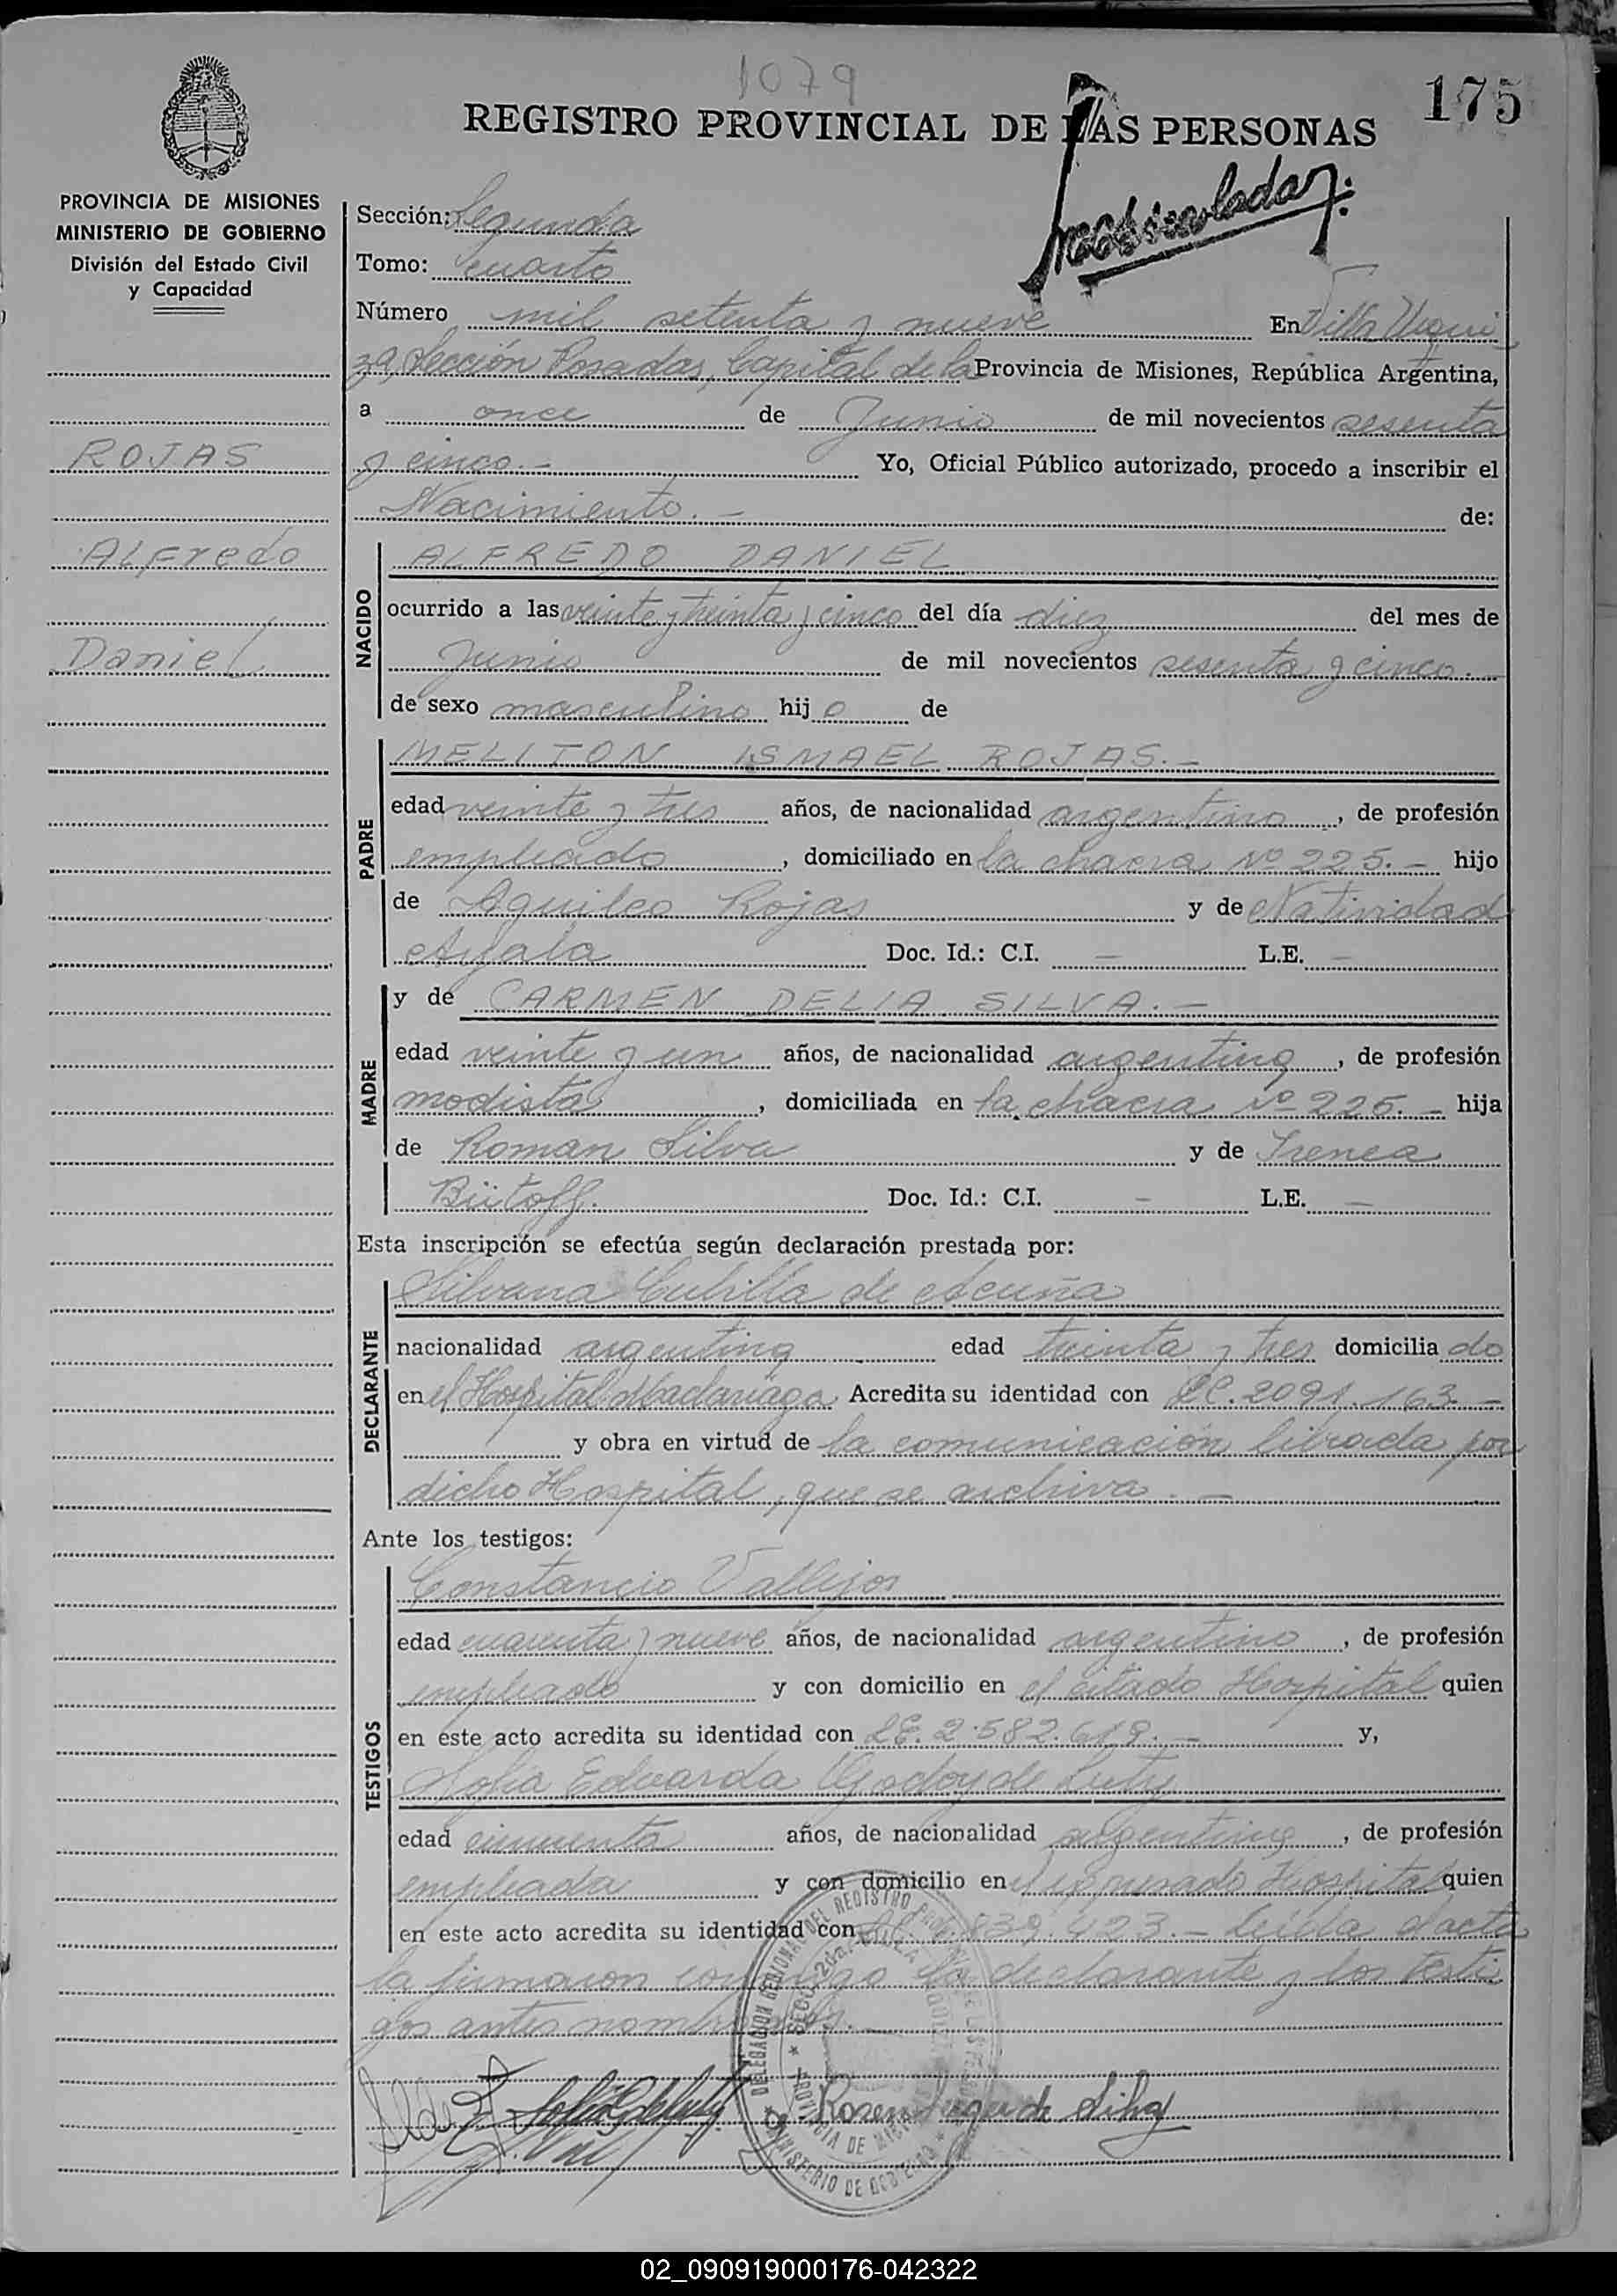 1079
175
REGISTRO PROVINCIAL DE LAS PERSONAS
PROVINCIA DE MISIONES
MINISTERIO DE GOBIERNO
División del Estado Civil
y Capacidad
ROJAS
Alfredo
Daniel
Sección: Segunda
Tomo: cuarto
Número mil setenta y nueve En Villa Urqui
za, Sección Posadas, Capital de la Provincia de Misiones, República Argentina,
a once de Junio de mil novecientos sesenta
y cinco.- Yo, Oficial Público autorizado, procedo a inscribir el
Nacimiento.- de:
NACIDO
ALFREDO DANIEL
ocurrido a las veinte y treinta y cinco del día diez del mes de
Junio de mil novecientos sesenta y cinco.-
de sexo masculino hijo de
PADRE
MELITON ISMAEL ROJAS.-
edad veinte y tres años, de nacionalidad argentino, de profesión
empleado, domiciliado en la chacra Nº 225.- hijo
de Aquileo Rojas y de Natividad
Ayala Doc. Id.: C.I. - L.E. -
MADRE
y de CARMEN DELIA SILVA.-
edad veinte y un años, de nacionalidad argentina, de profesión
modista, domiciliada en la chacra Nº 225.- hija
de Roman Silva y de Irenea
Bütoff. Doc. Id.: C.I. - L.E. -
Esta inscripción se efectúa según declaración prestada por:
DECLARANTE
Silvana Cubilla de Acuña
nacionalidad argentina edad treinta y tres domiciliado
en el Hospital Madariaga Acredita su identidad con LC. 2091.163.-
y obra en virtud de la comunicación librada por
dicho Hospital, que se archiva.-
Ante los testigos:
TESTIGOS
Constancio Vallejos
edad cuarenta y nueve años, de nacionalidad argentino, de profesión
empleado y con domicilio en el citado Hospital quien
en este acto acredita su identidad con LE. 2.582.619.- y,
Sofia Eduarda Godoy de Luty
edad cincuenta años, de nacionalidad argentina, de profesión
empleada y con domicilio en el expresado Hospital quien
en este acto acredita su identidad con 839.423.- Leída el acta
la firmaron conmigo la declarante y los testi
gos antes nombrados.-
DELEGACION REGIONAL DEL REGISTRO
SECC. 2da. VILLA
PROVINCIA DE MISIONES
MINISTERIO DE GOBIERNO
de Silva
02_090919000176-042322